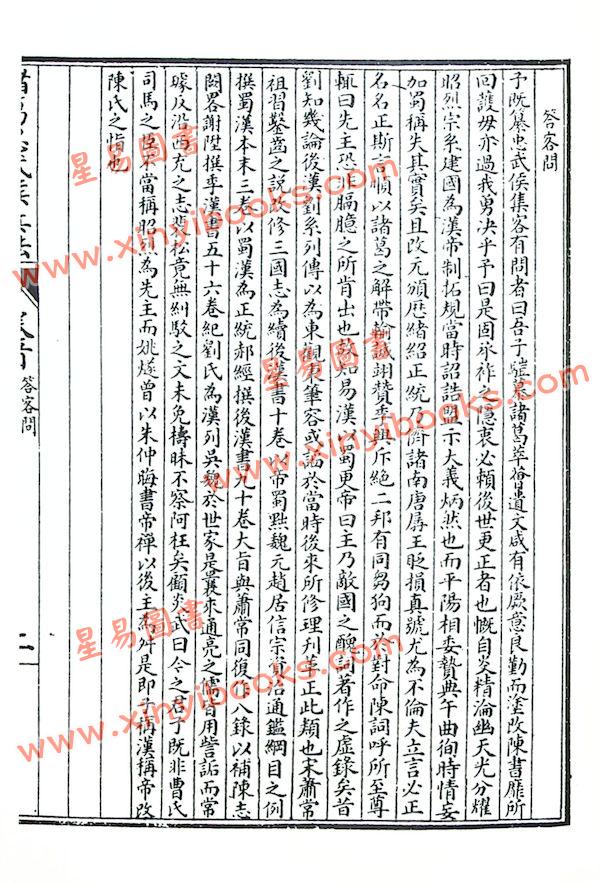 答客問
予既纂忠武侯集客有問者曰吾子愷慕諸葛萃㫺遺文咸有依㩀意良勤而塗改陳書靡所
回護毋亦過我勇決乎予曰是固承祚之隱衷必賴後世更正者也慨自炎精淪幽天光分耀
昭烈宗系建國為漢帝制拓規當時詔誥盟示大義炳然也而平陽相委贄典午曲徇時情妄
加蜀稱失其實矣且改元頒歷緒紹正統乃儕諸南唐孱王貶損真號尤為不倫夫立言必正
名名正斯言順以諸葛之解帶輸誠翊贊季興斥絕二邦有同芻狗而於對命陳詞呼所至尊
輒曰先主恐非膈臆之所肯出也孰知易漢以蜀更帝曰主乃敵國之醜詞著作之虛錄矣昔
劉知幾論後漢劉系列傳以為東觀秉筆容或諂於當時後來所修理刊革正此類也宋蕭常
祖習鑿齒之說改修三國志為續後漢書十卷以帝蜀黜魏元趙居信宗資治通鑑綱目之例
撰蜀漢本末三卷以蜀漢為正統郝經撰後漢書九十卷大旨與蕭常同復作八錄以補陳志
闕畧謝陞撰季漢書五十六卷紀劉氏為漢列吳魏於世家是曩來通亮之儒皆用訾詬而常
璩反沿西充之志裴松竟無糾駁之文未免檮昧不察阿枉矣顧炎武曰今之君子既非曹氏
司馬之臣不當稱昭烈為先主而姚燧曾以朱仲晦書帝禪以後主為舛是即予稱漢稱帝改
陳氏之恉也
答客問
二
星易圖書
www.xinyibooks.com
星易圖書
www.xinyibooks.com
星易圖書
www.xinyibooks.com